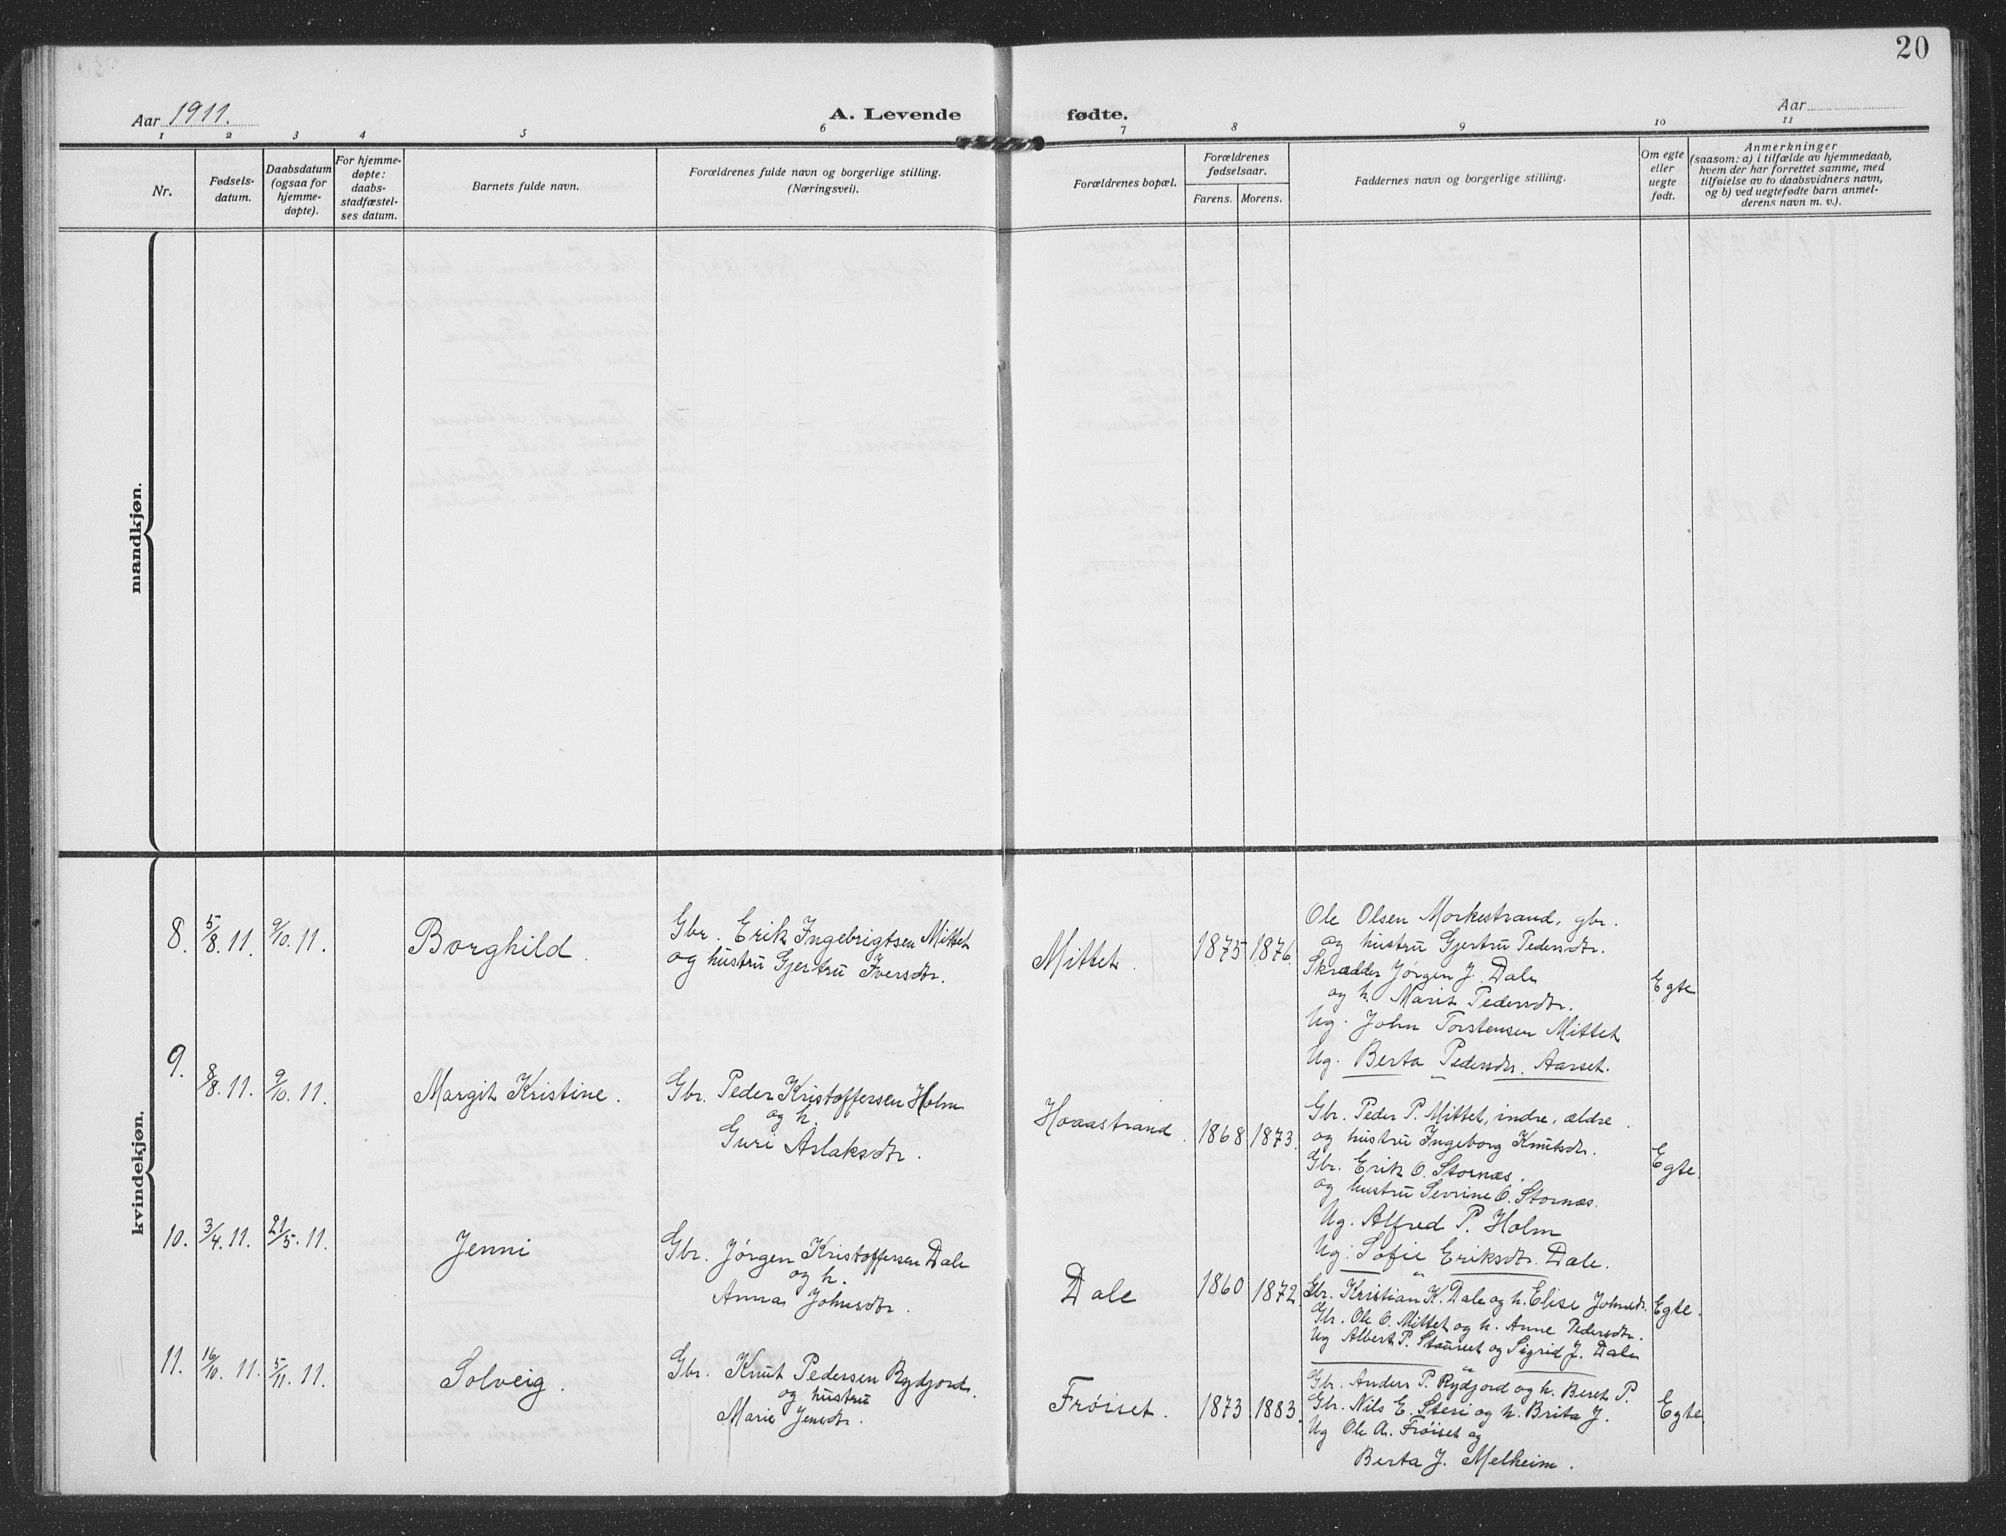 20
Aar 1911.
A. Levende fødte.
Aar
1 2 3 4 5 6 7 8 9 10 11
Nr.
Fødsels-
datum.
Daabsdatum
(ogsaa for
hjemme-
døpte).
For hjemme-
døpte:
daabs-
stadfæstel-
ses datum.
Barnets fulde navn.
Forældrenes fulde navn og borgerlige stilling.
(Næringsvei).
Forældrenes bopæl.
Forældrenes
fødselsaar.
Farens. Morens.
Faddernes navn og borgerlige stilling.
Om egte
eller
uegte
født.
Anmerkninger
(saasom: a) i tilfælde av hjemmedaab,
hvem der har forrettet samme, med
tilføielse av to daabsvidners navn,
og b) ved uegtefødte barn anmel-
derens navn m. v.).
mandkjøn.
kvindekjøn.
8. 5/8. 11. 9/10. 11.
Borghild.
Gbr. Erik Ingebrigtsen Mittet
og hustru Gjertru Iversdtr.
Mittet.
1875 1876.
Ole Olsen Morkestrand, gbr.
og hustru Gjertru Pedersdtr.
Skrædder Jørgen J. Dale
og h. Marit Pedersdtr.
Ug. John Torstensen Mittet
Ug. Berta Pedersdtr. Aarset.
Egte
9. 8/8. 11. 9/10. 11.
Margit Kristine.
Gbr. Peder Kristoffersen Holm
og h.
Guri Aslaksdtr.
Hovastrand.
1868 1873.
Gbr. Peder P. Mittet, indre, ældre.
og hustru Ingeborg Knutsdtr.
Gbr. Erik O. Stornæs.
og hustru Sevrine O. Stornæs.
Ug. Alfred P. Holm
Ug. Sofie Eriksdtr. Dale.
Egte.
10. 3/4. 11. 21/5. 11.
Jenni
Gbr. Jørgen Kristoffersen Dale
og h.
Anna Johnsdtr.
Dale
1860 1872.
Gbr. Kristian K. Dale og h. Elise Johnsdtr.
Gbr. Ole O. Mittet og h. Anne Pedersdtr.
Ug Albert P. Staurset og Sigrid J. Dale
Egte.
11. 16/10. 11. 5/11. 11.
Solveig.
Gbr. Knut Pedersen Rydjord.
og hustru
Marie Jensdtr.
Frøiset.
1873. 1883.
Gbr. Anders P. Rydjord og h. Beret P.
Gbr. Nils E. Steri og h. Brita J.
Ug Ole A. Frøiset og
Berta J. Melheim.
Egte.